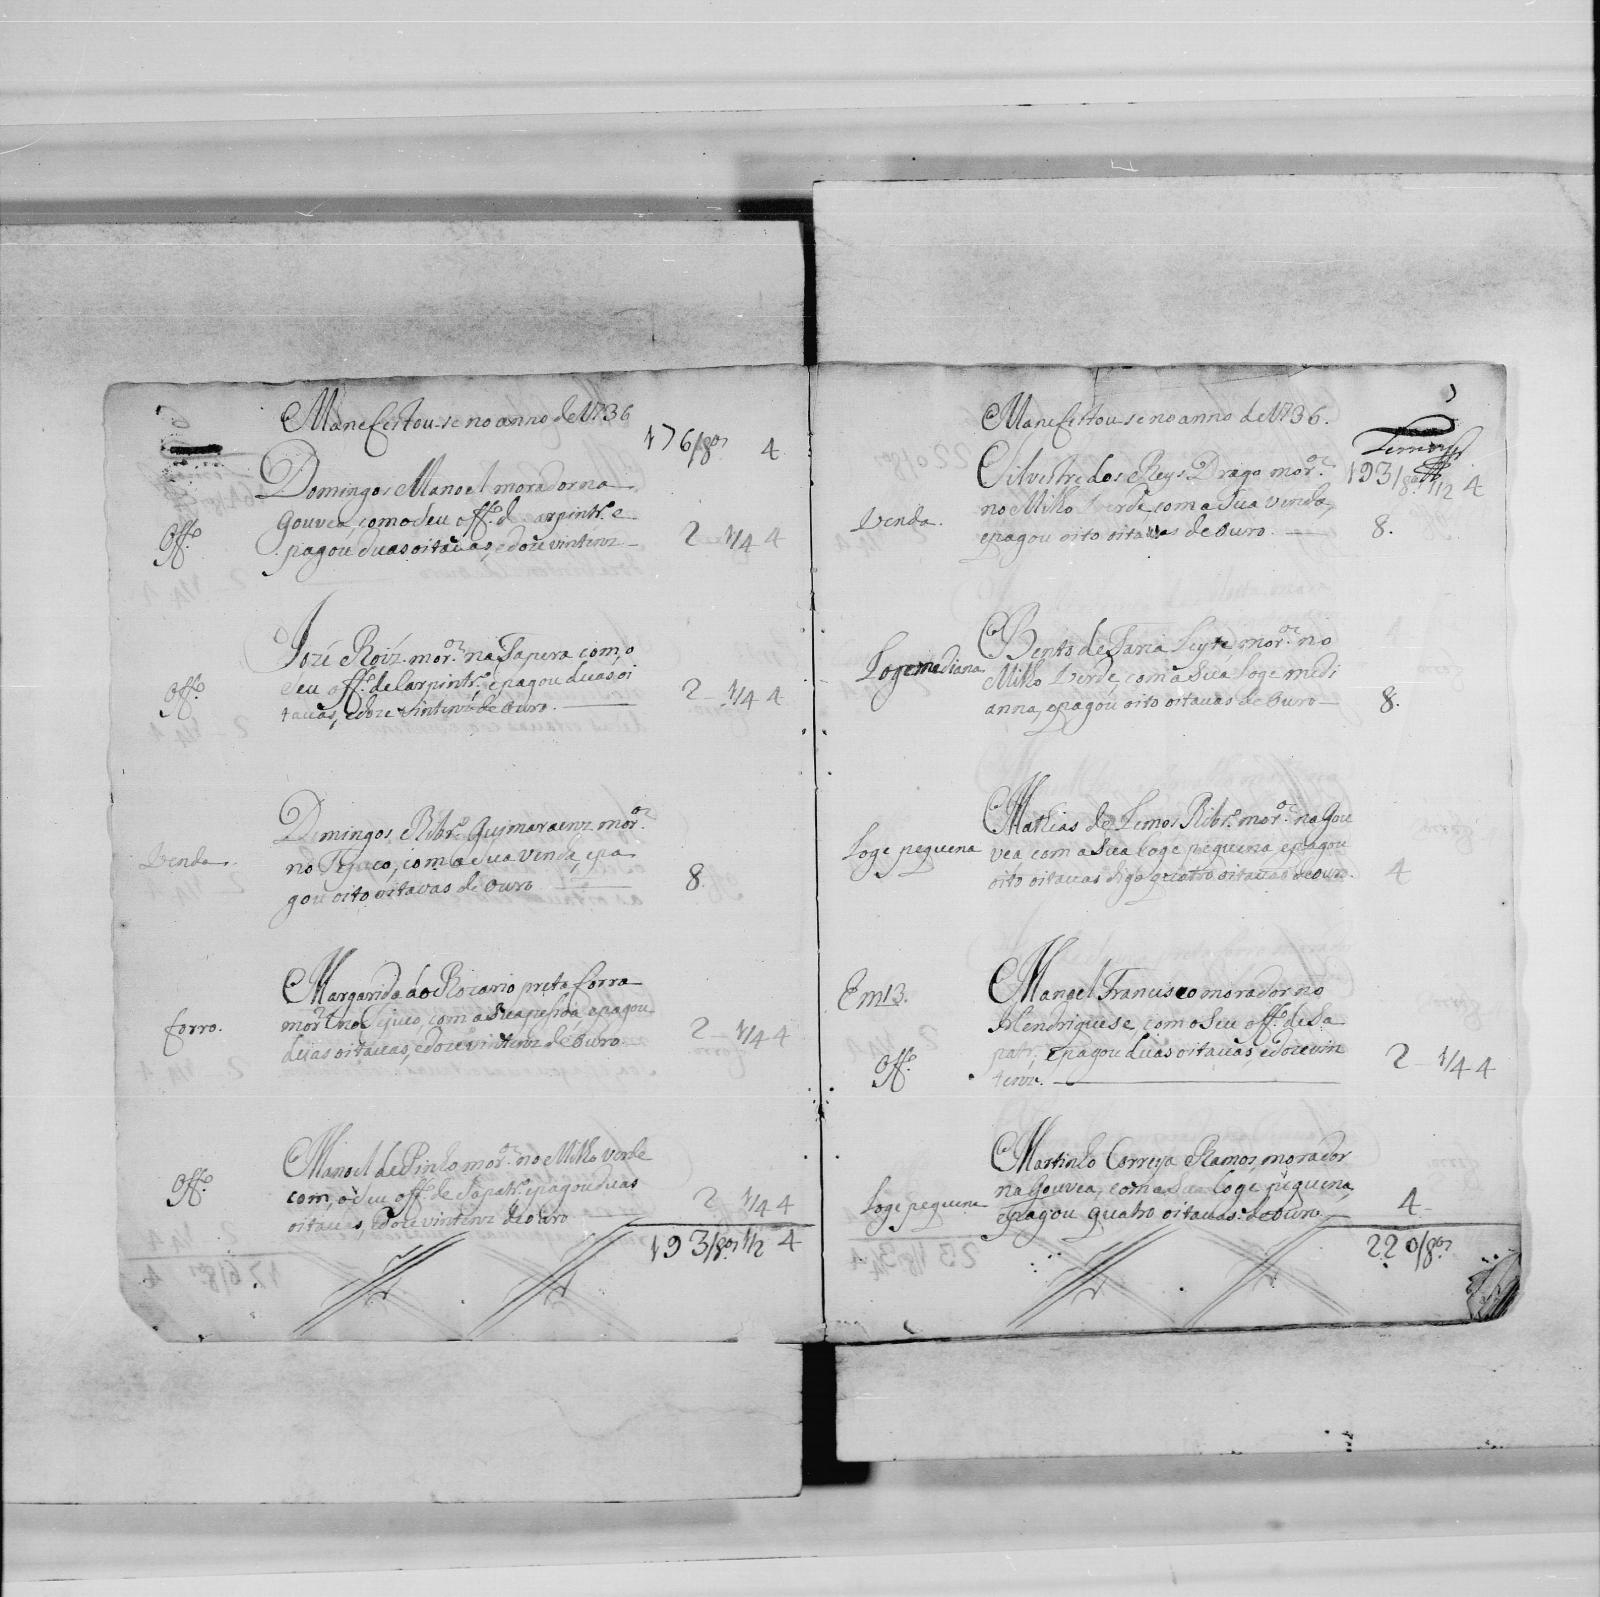 Manefestou-se no anno de 1736
176/8as 4
Domingos Manoel morador na
Gouvea, com o seu off.º de carpintr.º e
Off.º
pagou duas oitavas, e doze vintenz — 2 — 1/4 4
Jozé Roiz. mor.or na Tapera com, o
seu off.º de Carpintr.º, e pagou duas oi
Off.º
tavas, e doze vintenz de Ouro. — 2 — 1/4 4
Domingos Ribr.º Guimaraenz mor.or
Venda.
no Tejuco, com a sua venda, epa
gou oito oitavas de ouro — 8.
Margarida do Rozario preta forra
forro.
mor.ª no Tejuco, com a sua pesoa epagou
duas oitavas, e doze vintenz de Ouro 2 — 1/4 4
Manoel de Pinho mor.or no Milho verde
Off.º
com, o seu off.º de Sapatr.º, epagou duas
oitavas, e doze vintenz de ouro 2 1/4 4
193/8as 1/2 4
Manefestou-se no anno de 1736.
Silvestre dos Reys Drago mor.or
193/8as 1/2 4
no Milho Verde, com a Sua venda,
Venda.
epagou oito oitavas de Ouro — 8.
Bento de Faria Leyte mor.or no
Loge mediana
Milho Verde, com a Sua loge medi
anna, epagou oito oitavas de Ouro — 8.
Mathias de Lemos Ribr.º mor.or na Gou
Loge pequena
vea com a Sua loge pequena, epagou
oito oitavas digo quatro oitavas de ouro. 4
Em 13.
Manoel Francisco morador no
Hendriguese, com o Seu off.º de Sa
patr.º, epagou duas oitavas, e doze vin
Off.º
tenz. — 2 — 1/4 4
Martinho Correya Ramos, morador
na Gouvea, com a Sua loge pequena,
Loge pequena
epagou quatro oitavas de Ouro — 4 —
220/8as